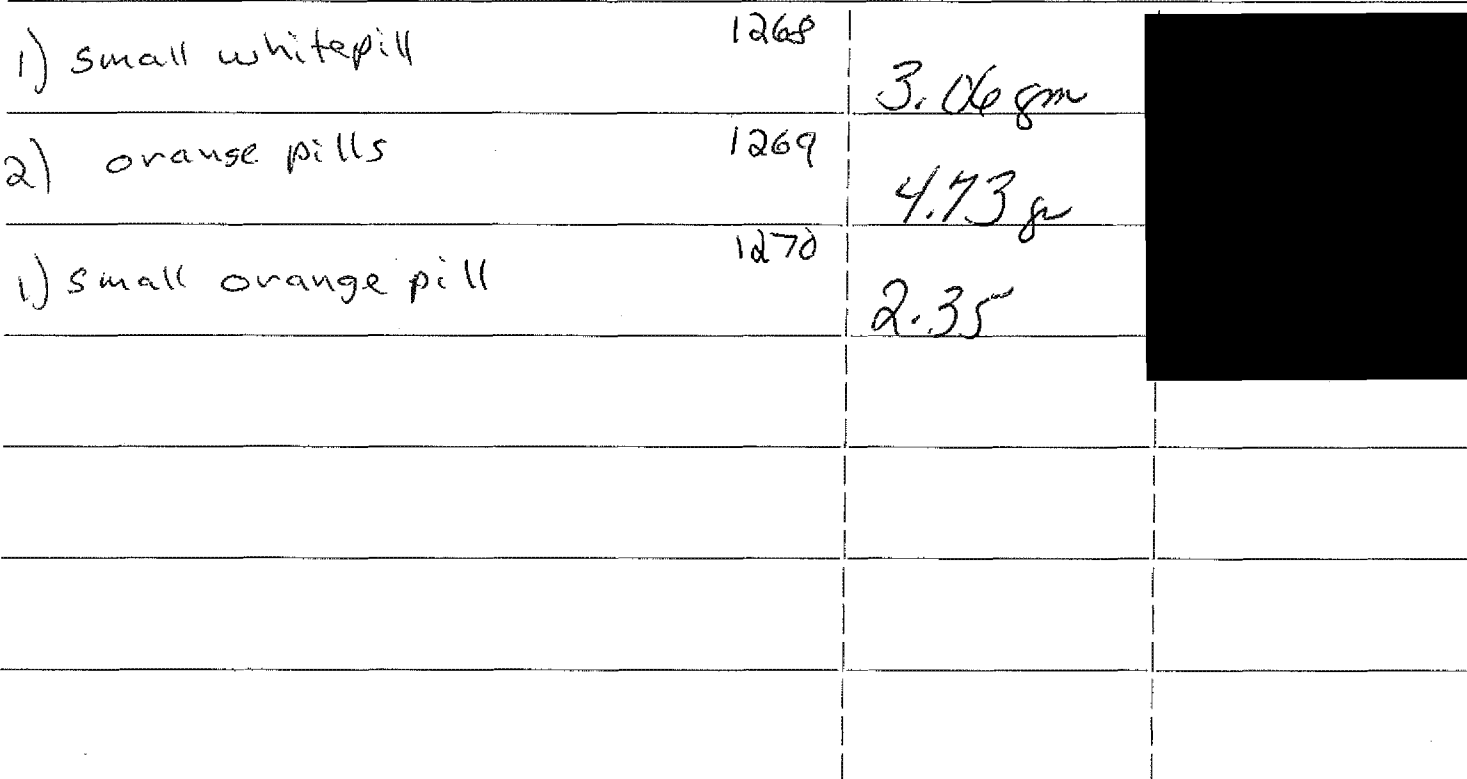 1) small white pill 1268 3.06 gm
2) orange pills 1269 4.73 g
1) small orange pill 1270 2.35